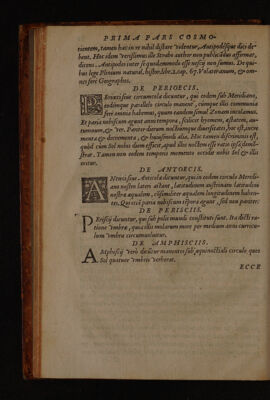 PRIMA PARS COSMO-
tientem, tamen hac in re nihil distare videntur, Antipodésque dici debent. Hoc idem verissimus ille Strabo author non
dicens. Antipodes inter se quodammodo esse nosse non sumus. De quibus lege Plinium natural. histor. lib. 2. cap. 67. Volaterranum, & omnes fere Geographos.
DE PERIOECIS.
Perioeci sive circumcolae dicuntur, qui eodem sub Meridiano,
eodémque parallelo circulo manent, cúmque illis communia
fere omnia habemus, quum eandem simul Zonam incolamus.
Et paria nobiscum agunt anni tempora, scilicet hyemem, aestatem, autumnum, & ver. Pariter dierum noctiumque diversitates hoc est incrementa & decrementa, & huiusmodi alia. Hoc tamen differentia est,
quòd cum Sol nobis diem efficit, apud illos noctem esse ratio ipsa
strat. Tamen non eodem temporis momento occidit nobis Sol & illis
oritur.
DE ANTOECIS.
ANtoeci sive Antecolae dicuntur, qui in eodem circulo Meridiano nostro latent
nostrae aequalem,
tes. Qui etiã paria nobiscum tẽpora agunt, sed non pariter.
DE PERISCIIS.
PEriscij dicuntur, qui sub polis mundi constituti sunt. Ita dicti ratione umbrae, quae illis molarum more per medium anni curriculum umbrae circumvoluitur.
DE AMPHISCIIS.
AMphiscij verò dicũtur manentes sub aequinoctiali circulo quos
Sol quatuor umbris verberat.
ECCE